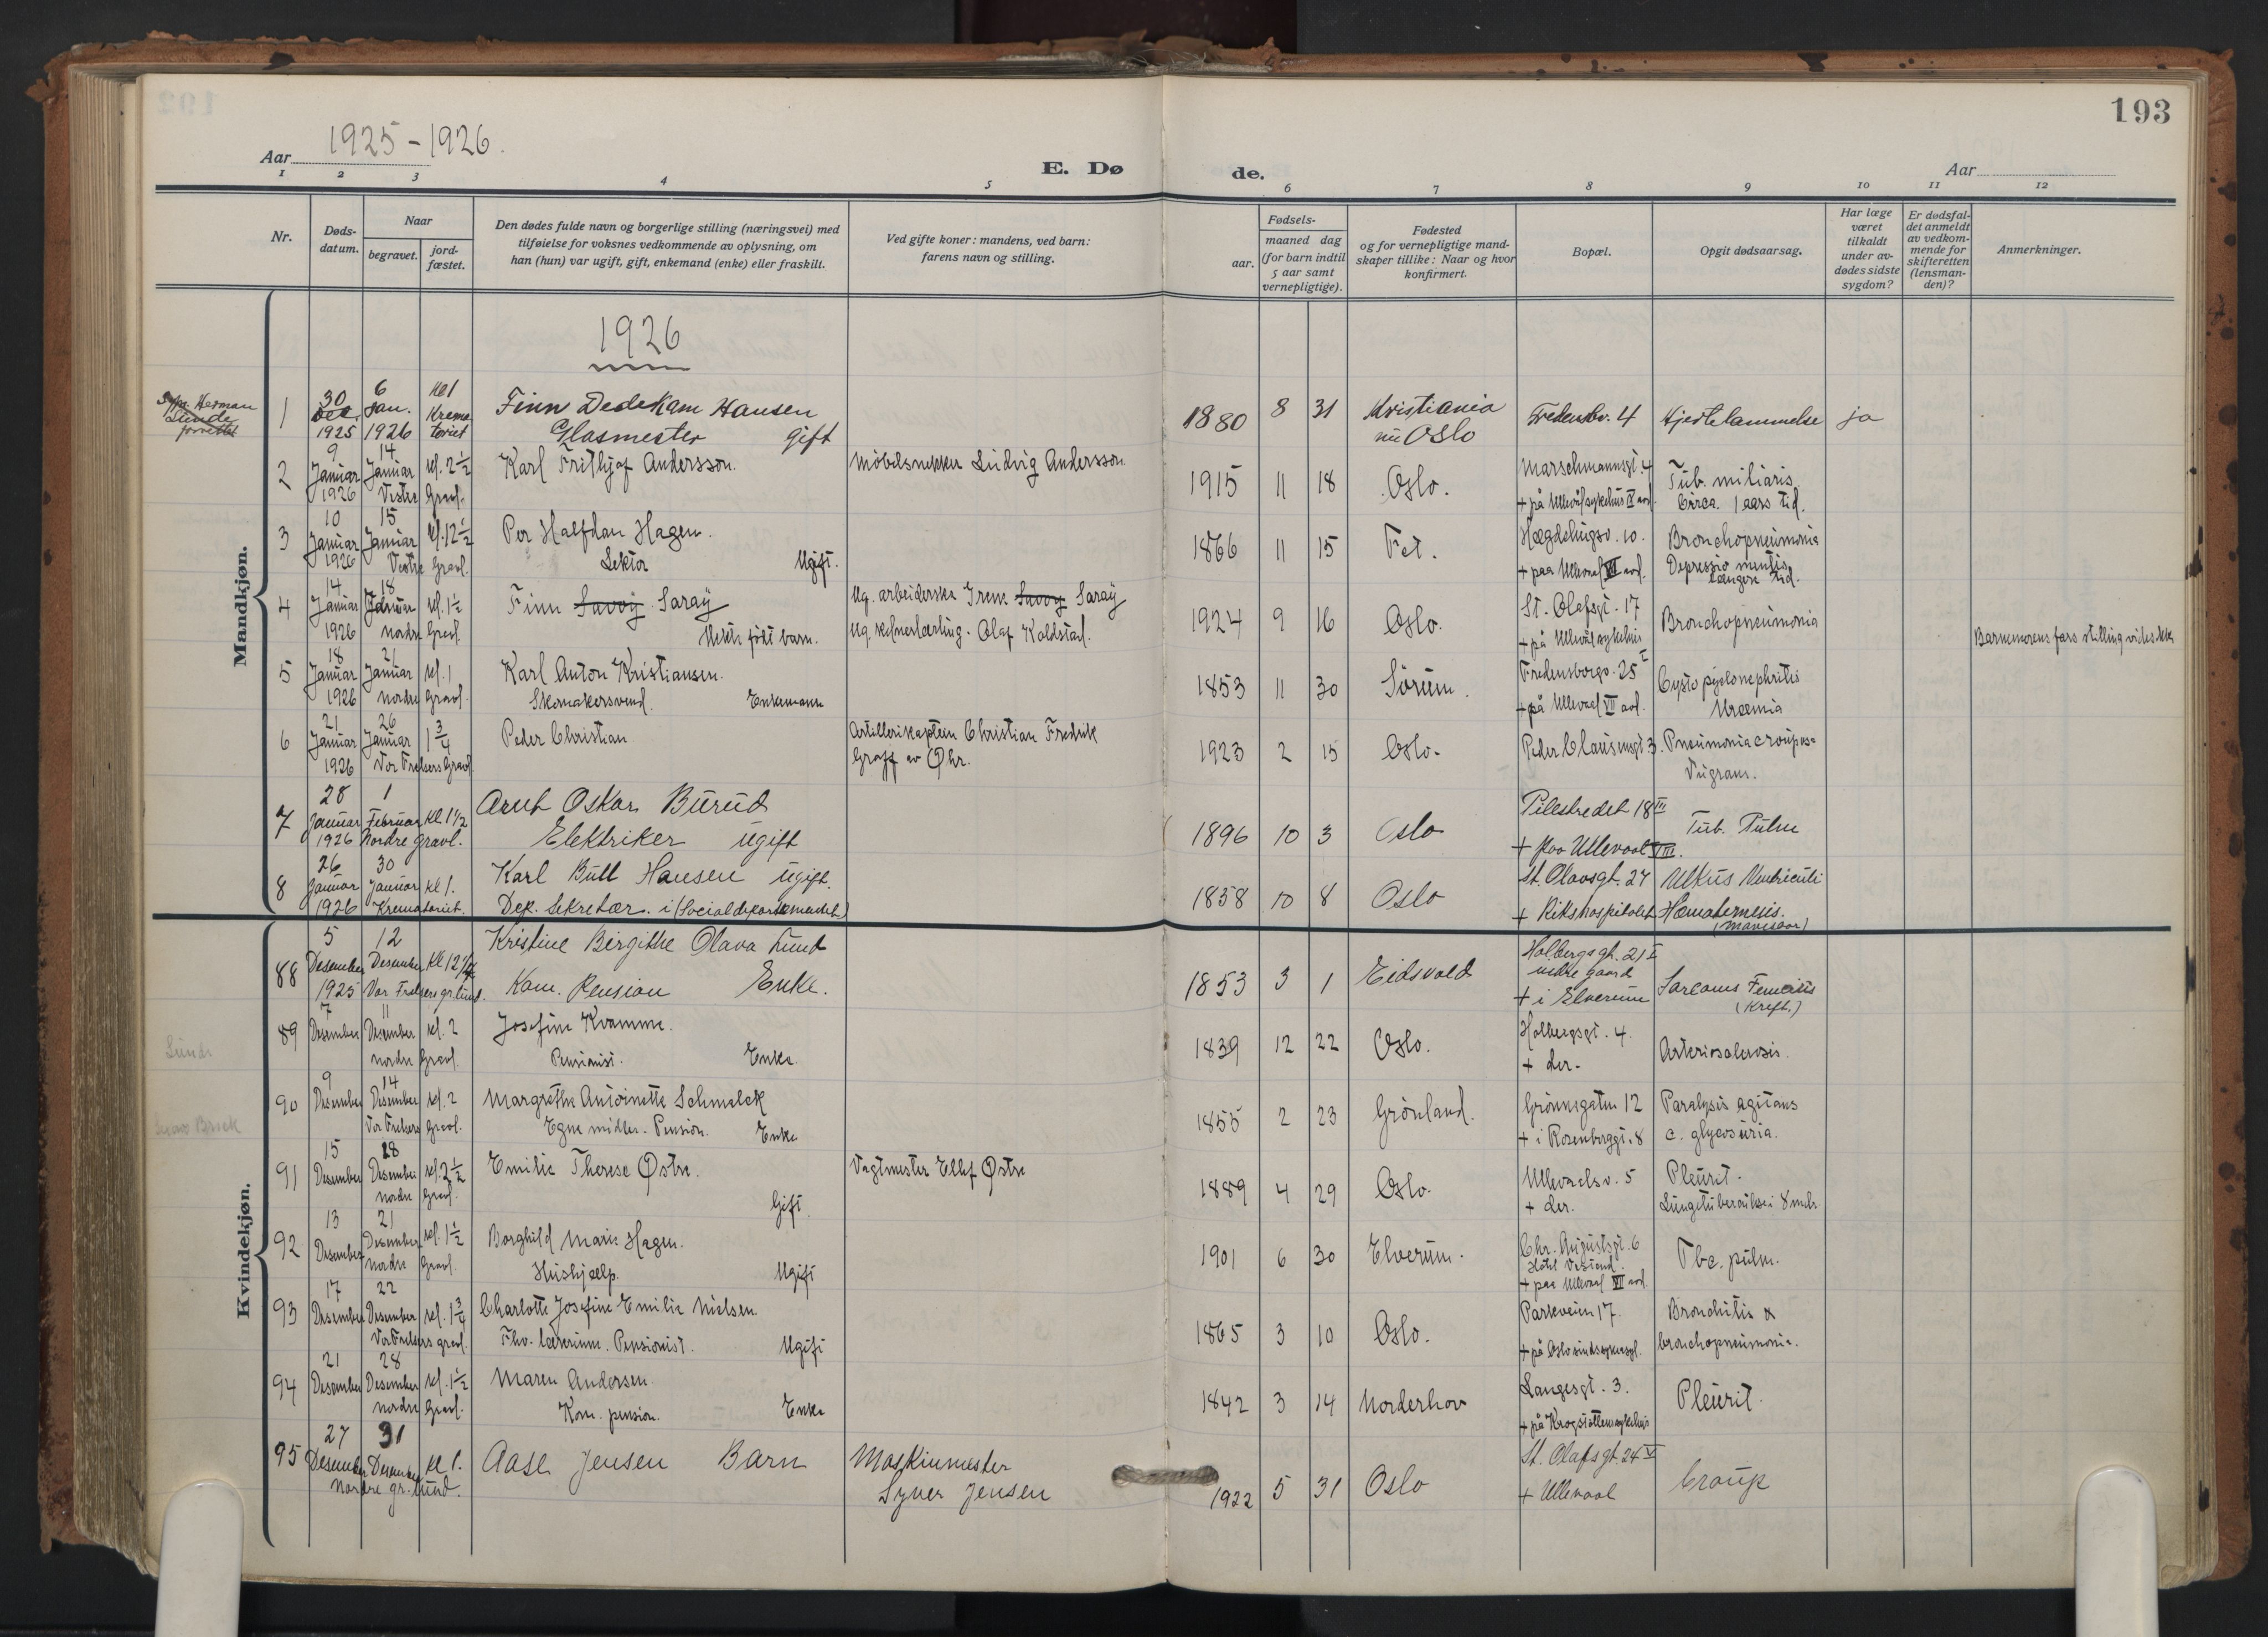 193
Aar 1925-1926.
E. Døde.
Aar
1 2 3 4 5 6 7 8 9 10 11 12
Nr.
Døds-datum.
Naar
begravet.
jord-fæstet.
Den dødes fulde navn og borgerlige stilling (næringsvei) med
tilføielse for voksnes vedkommende av oplysning, om
han (hun) var ugift, gift, enkemand (enke) eller fraskilt.
Ved gifte koner: mandens, ved barn:
farens navn og stilling.
Fødsels-
aar.
maaned dag
(for barn indtil
5 aar samt
vernepligtige).
Fødested
og for vernepligtige mand-
skaper tillike: Naar og hvor
konfirmert.
Bopæl.
Opgit dødsaarsag.
Har læge
været
tilkaldt
under av-
dødes sidste
sygdom?
Er dødsfal-
det anmeldt
av vedkom-
mende for
skifteretten
(lensman-
den)?
Anmerkninger.
Mandkjøn.
1926
Herman
Lunde
forrettet
1 30 Dec. 1925 6 Jan. 1926 kl 1 Krematoriet
Finn Dedekam Hansen
Glasmester gift
1880 8 31 Kristiania nu Oslo
Fredensbv. 4 Hjertelammelse ja
2 9 Januar 1926 14 Januar kl. 2½ Vestre Gravl.
Karl Frithjof Andersson.
Møbelsnekker Ludvig Andersson.
1915 11 18 Oslo.
Marschmannsgt. 4
+ på Ullevål sykehus IX avd.
Tub. miliaris.
Circa. 1 aars tid.
3 10 Januar 1926 15 Januar kl. 12½ Vestre Gravl.
Per Halfdan Hagen.
Lektor Ugift.
1866 11 15 Fet.
Hægdehugsv. 10.
+ paa Ullevaal VII avd.
Bronchopneumonia
Depressio mentis
længere tid.
4 14 Januar 1926 18 Januar kl. 1½ nordre Gravl.
Finn Savoy Saray
Uekte født barn.
Ug. arbeiderske Irene Savoy Saray
Ug. kelnerlærling. Olaf Koldstad.
1924 9 16 Oslo.
St. Olafsgt. 17
+ på Ullevål sykehus
Bronchopneumonia
Barnemorens fars stilling vides ikke
5 18 Januar 1926 21 Januar kl. 1 nordre Gravl.
Karl Anton Kristiansen.
Skomakersvend. Enkemann
1853 11 30 Sørum.
Fredensborgv. 25 I
+ på Ullevaal VII avd.
Cystopyelonephritis
Uræmia
6 21 Januar 1926 26 Januar 1¾ Vor Frelsers Gravl.
Peder Christian
Artillerikaptein Christian Fredrik
Graff av Øhr.
1923 2 15 Oslo.
Peder Clausensgt 3.
Pneumonia croupos-
7 28 Januar 1926 1 Februar kl 1½ Nordre gravl.
Arnt Oskar Burud
Elektriker Ugift
1896 10 3 Oslo
Pilestredet 18 III
+ paa Ullevaal VIII.
Tub. Pulm
8 26 Januar 1926 30 Januar kl 1. Krematoriet.
Karl Bull Hansen Ugift.
Dep. Sekretær. i (Socialdepartementet)
1858 10 8 Oslo
St. Olavsgt. 27
+ Rikshospitalet
Ulkus Ventriculi
Hæmatemesis.
(Mavesaar)
Kvindekjøn.
88 5 Desember 1925 12 Desember Kl 12½ Vor Frelsers gr.lund.
Kristine Birgithe Olava Lund
Kom. Pension Enke.
1853 3 1 Eidsvold
Holbergsgt. 21 I
nedre gaard
+ i Elverum
Sarcoma Femoris
(Kreft.)
Lunde
89 7 Desember 11 Desember kl. 2 nordre Gravl.
Josefine Kvamme.
Pensionist. Enke.
1839 12 22 Oslo.
Holbergsgt. 4.
+ der.
Arteriosclerosis.
90 9 Desember 14 Desember kl. 2 Vor Frelsers Gravl.
Margrethe Antoinette Schmelck
Egne midler. Pension. Enke
1855 2 23 Grønland.
Grønnegaten 12
+ i Rosenborggt. 8
Paralysis agitans
c. glycosuria.
91 15 Desember 18 Desember kl. 2½ nordre Gravl.
Emilie Therese Østre.
Gift.
Vagtmester Ellef Østre
1889 4 29 Oslo.
Ullevaalsv. 5
+ der.
Pleurit.
Lungetuberculose i 8 mdr.
92 13 Desember 21 Desember kl. 1½ nordre Gravl.
Borghild Marie Hagen.
Hushjelp. Ugift
1901 6 30 Elverum.
Chr. Augustsgt. 6
+ paa Ullevaal VI avd.
Tbc. pulm.
93 17 Desember 22 Desember kl. 1¾ Vor Frelsers gravl.
Charlotte Josefine Emilie Nielsen.
Fhv. lærerinne. Pensionist. Ugift
1865 3 10 Oslo.
Parkveien 17.
+ på Oslo sindssykeasyl.
Bronchitis &
bronchopneumonia.
94 21 Desember 28 Desember kl. 1½ nordre Gravl.
Maren Andersen.
Kom. pension. Enke
1842 3 14 Norderhov
Langesgt. 3.
+ på Krogstøttens sykehus
Pleurit.
95 27 Desember 31 Desember kl 1. Nordre gr.lund.
Aase Jensen Barn
Maskinmester
Syver Jensen
1922 5 31 Oslo
St. Olafsgt. 24 V
+ Ullevaal
Croup